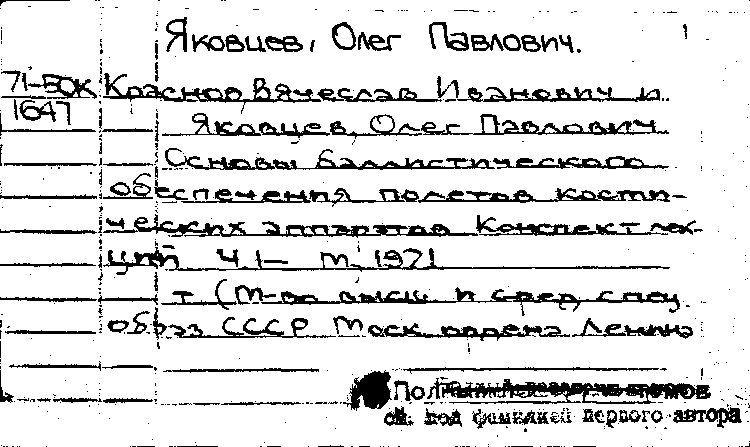 Яковцев, Олег Павлович. 1
71-ВОК Краснов, Вячеслав Иванович и
1647 Яковцев, Олег Павлович
Основы баллистического
обеспечения полетов косми-
ческих аппаратов Конспект лек-
ций Ч. 1— М., 1971
т (М-во высш и сред, спец
образ СССР Моск ордена Ленина
см. под фамилией первого автора